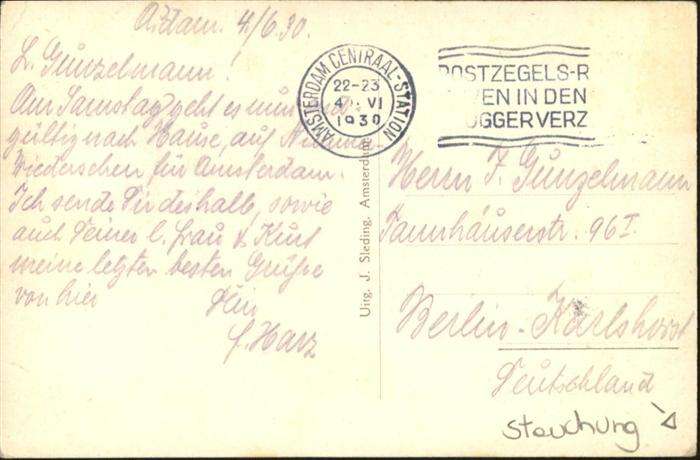 A.dam. 4/6.30.
L. Gunzelmann!
Am Samstag geht es nun
gültig nach Hause, auf Nimmer
Wiedersehen für Amsterdam.
Ich sende Dir deshalb, sowie
auch Deiner l. Frau & Kurt
meine letzten besten Grüße
von hier Dein
f. Harz
AMSTERDAM CENTRAAL-STATION
22-23
4 VI
1930
POSTZEGELS-R
VEN IN DEN
OGGERVERZ
Uitg. J. Sleding. Amsterdam
Herrn F. Gunzelmann
Tannhäuserstr. 96 I.
Berlin-Karlshorst
Deutschland
Stauchung